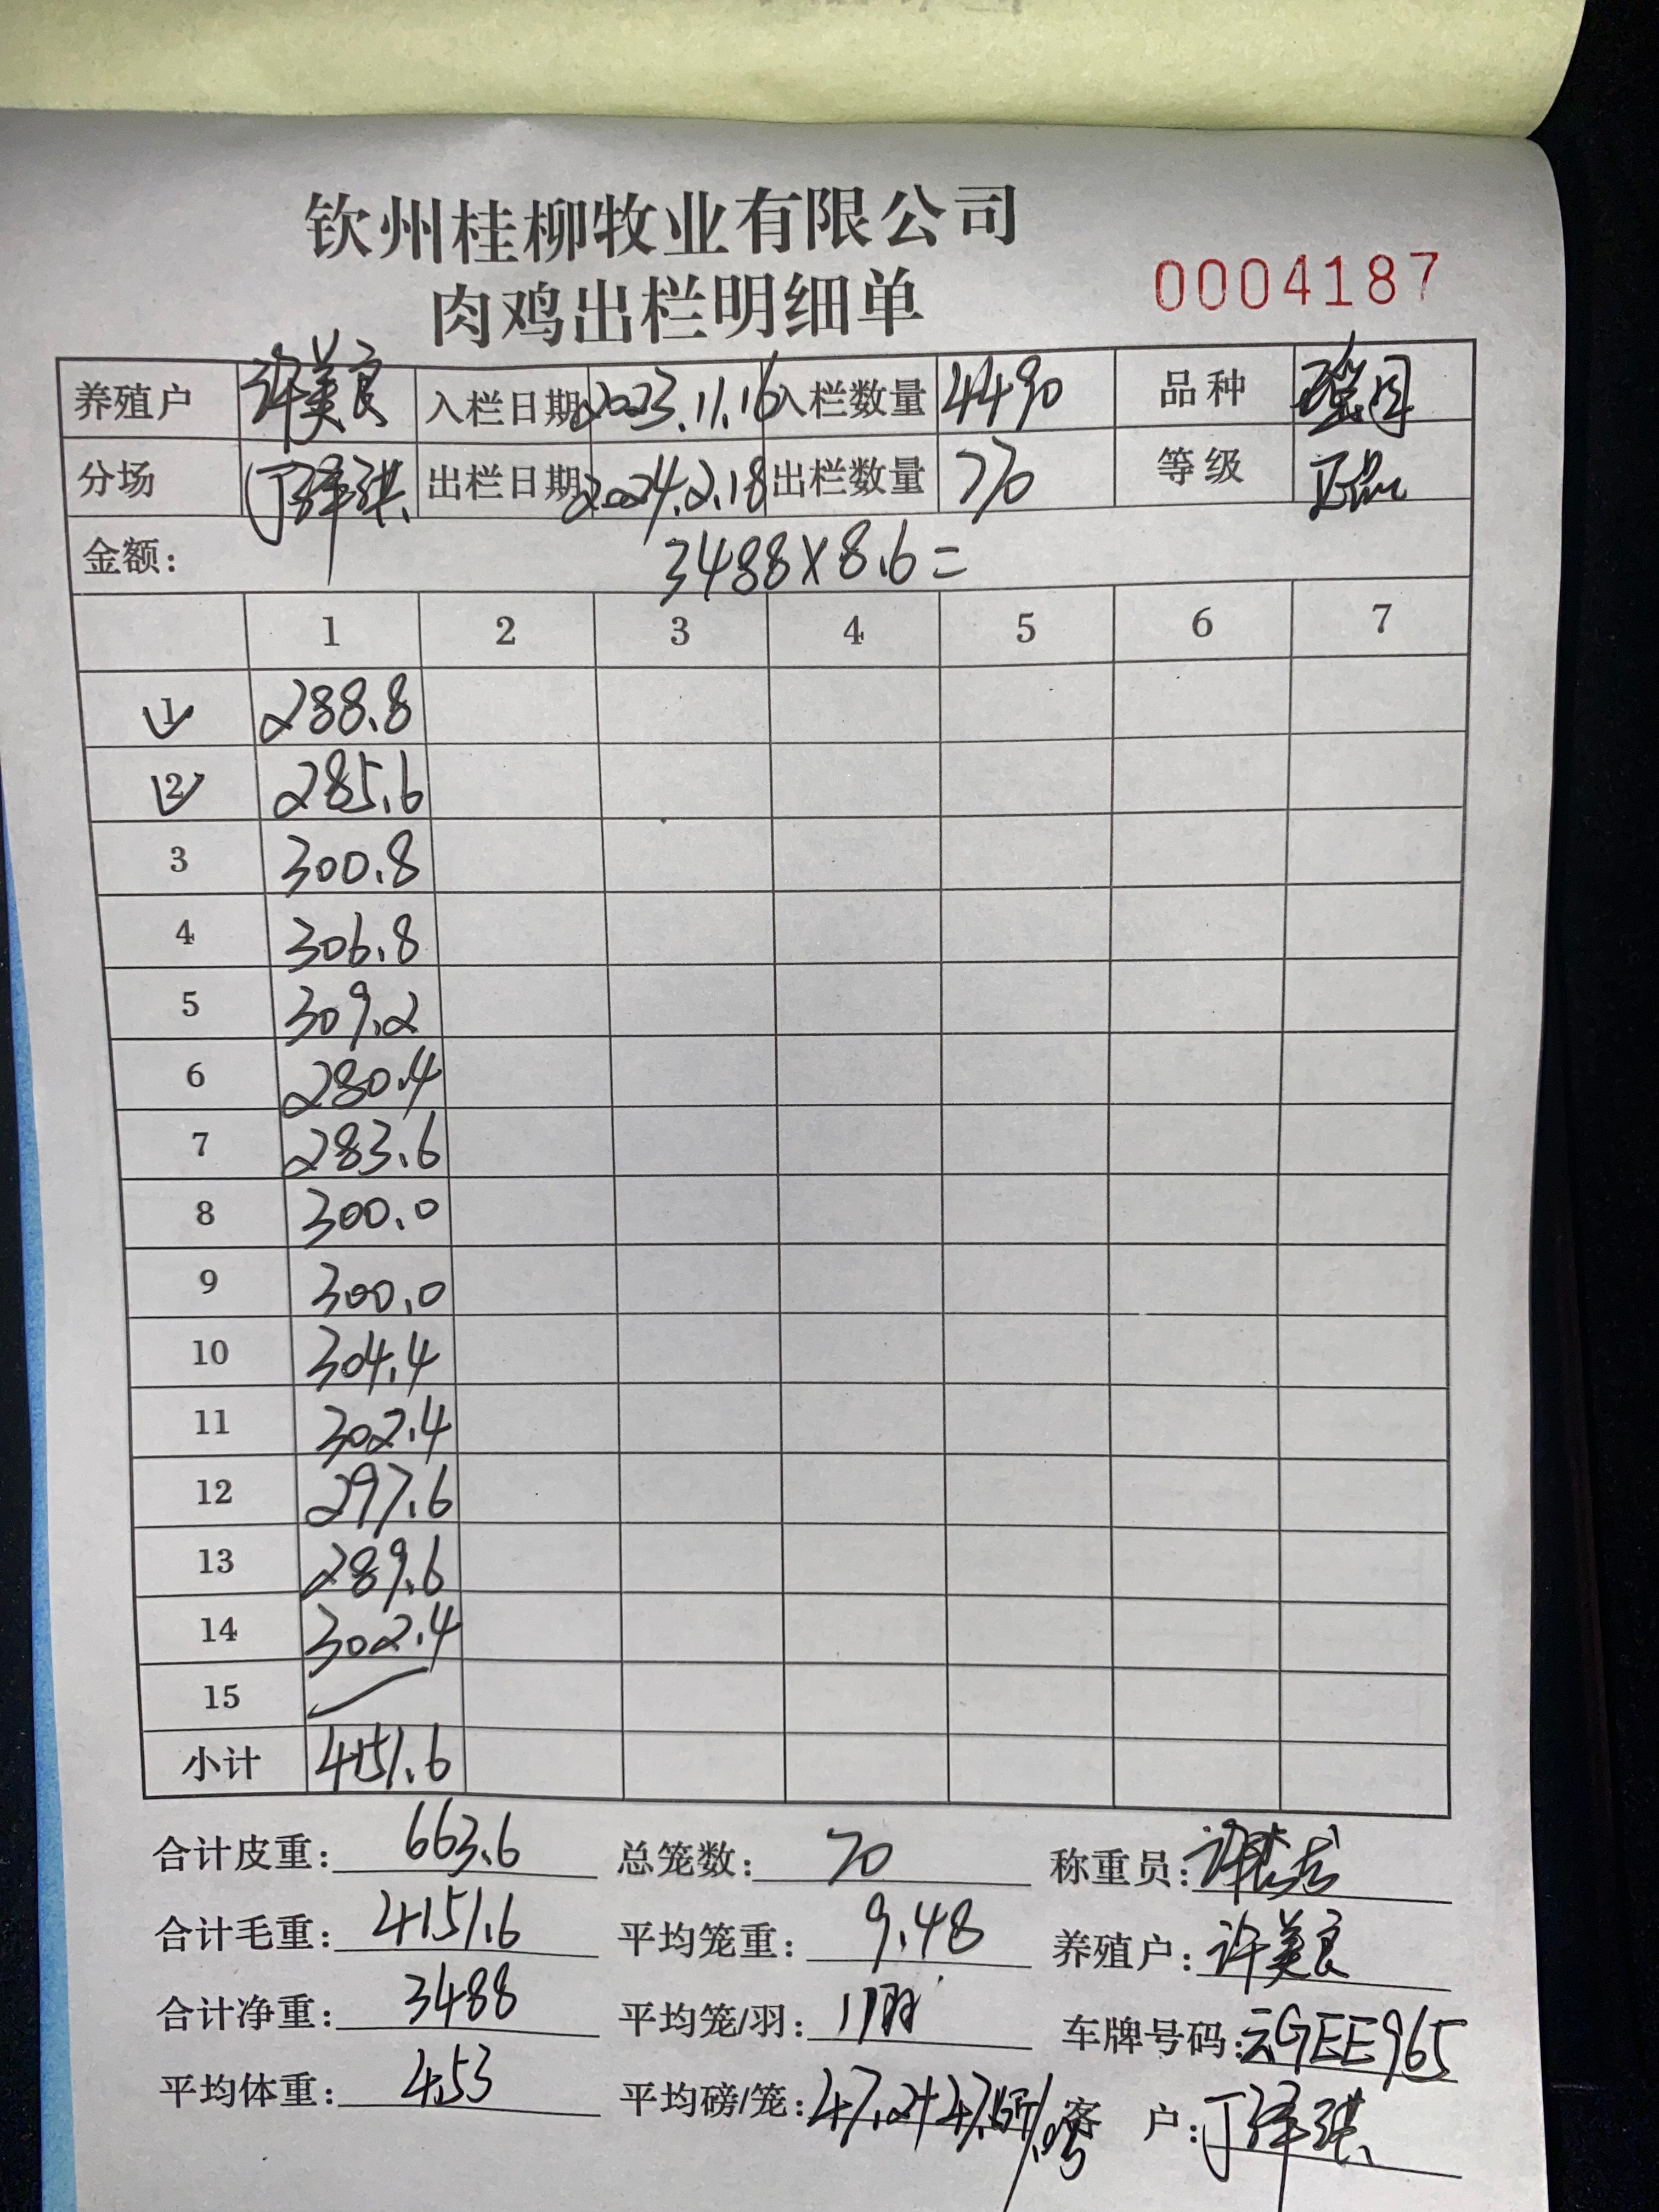 钦州桂柳牧业有限公司
肉鸡出栏明细单
0004187
养殖户 许美良 入栏日期 2023.11.16 入栏数量 4490 品种
分场 丁泽琪 出栏日期 2024.2.18 出栏数量 770 等级 正品
金额: 3488×8.6=
1 2 3 4 5 6 7
1 288.8
2 285.6
3 300.8
4 306.8
5 309.2
6 280.4
7 283.6
8 300.0
9 300.0
10 304.4
11 302.4
12 297.6
13 289.6
14 302.4
15
小计 4151.6
合计皮重: 663.6 总笼数: 70 称重员: 许
合计毛重: 4151.6 平均笼重: 9.48 养殖户: 许美良
合计净重: 3488 平均笼/羽: 11羽 车牌号码: 云GEE965
平均体重: 4.53 平均磅/笼: 47.2+47.6 客户: 丁泽琪